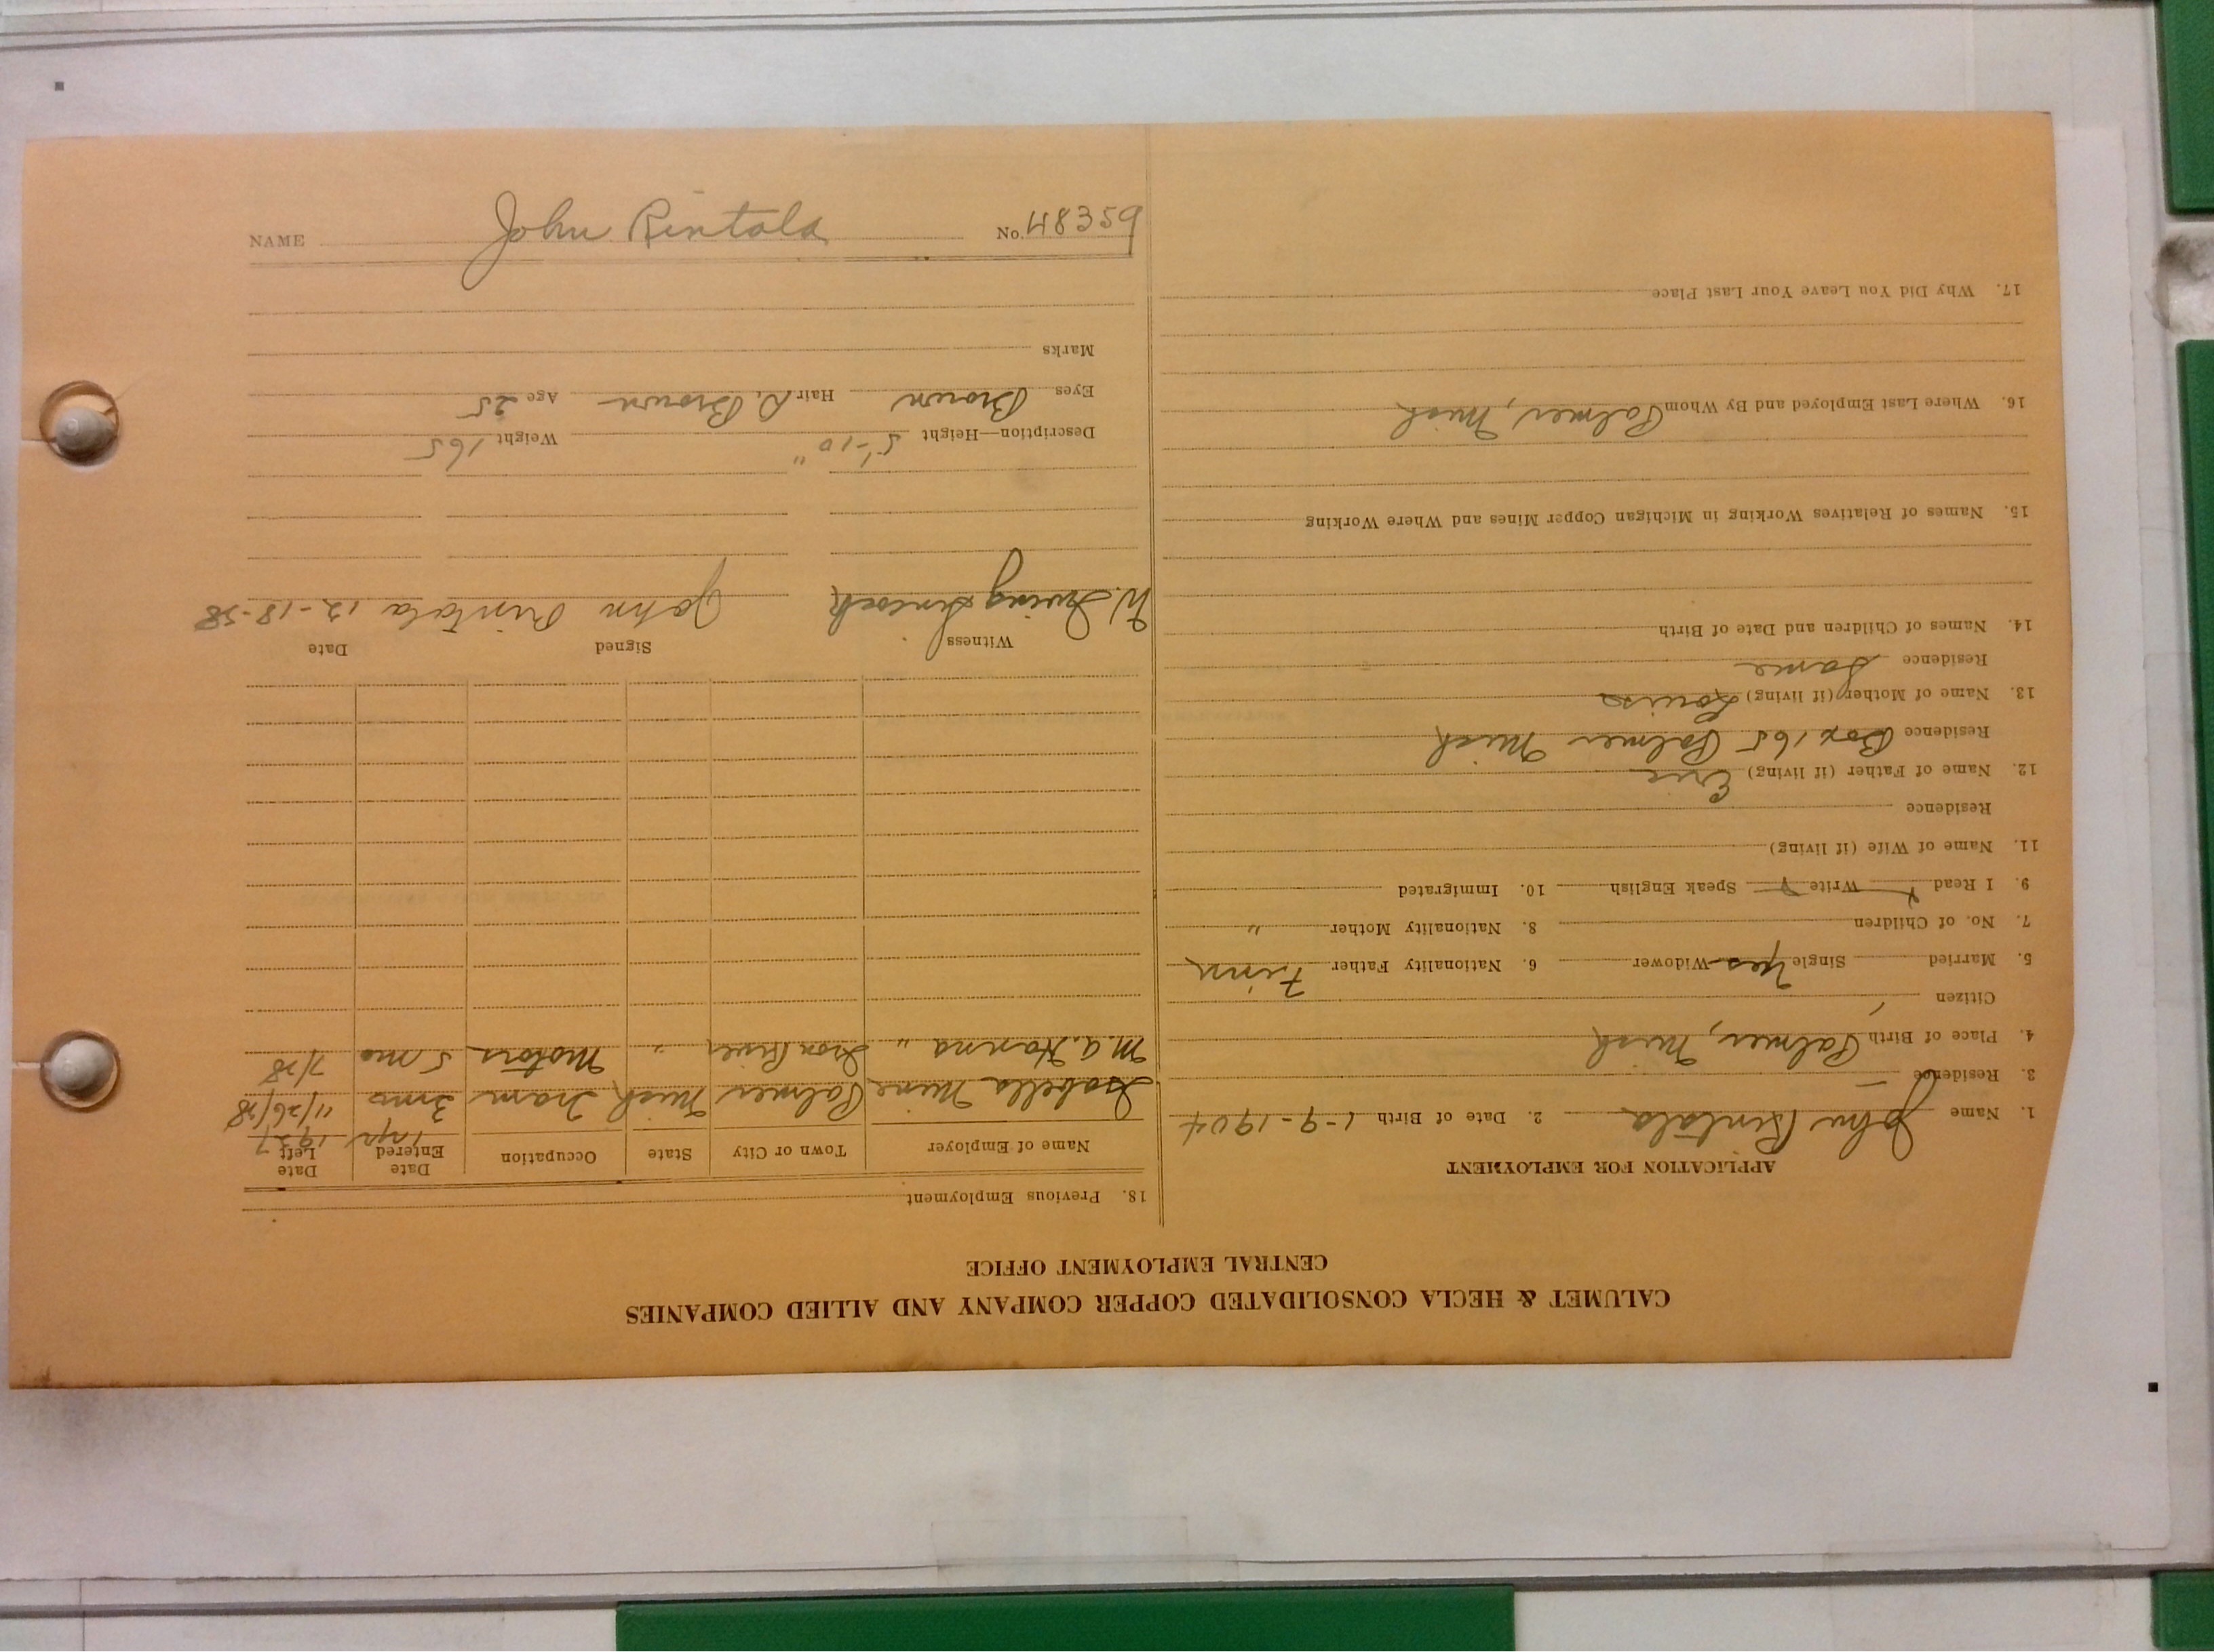 CALUMET & HECLA CONSOLIDATED COPPER COMPANY AND ALLIED COMPANIES
CENTRAL EMPLOYMENT OFFICE
APPLICATION FOR EMPLOYMENT
1. Name John Rintala 2. Date of Birth 1-9-1904
3. Residence —
4. Place of Birth Palmer, Mich
Citizen
5. Married Single Yes Widower 6. Nationality Father Finn
7. No. of Children 8. Nationality Mother "
9. I Read Write Speak English 10. Immigrated
11. Name of Wife (if living)
Residence
12. Name of Father (if living) Eric
Residence Box 165 Palmer Mich
13. Name of Mother (if living) Louise
Residence Same
14. Names of Children and Date of Birth
15. Names of Relatives Working in Michigan Copper Mines and Where Working
16. Where Last Employed and By Whom Palmer, Mich
17. Why Did You Leave Your Last Place
18. Previous Employment
Name of Employer Town or City State Occupation Date Entered Date Left
1 yr 1927
Isabella Mine Palmer Mich Tram 3 mo 11/26/28
M. A. Hanna " Iron River " Motors 5 mo 7/28
Witness Signed Date
W. Irving John Rintala 12-18-
Description—Height 5'-10" Weight 165
Eyes Brown Hair D. Brown Age 25
Marks
NAME John Rintala No. 48359